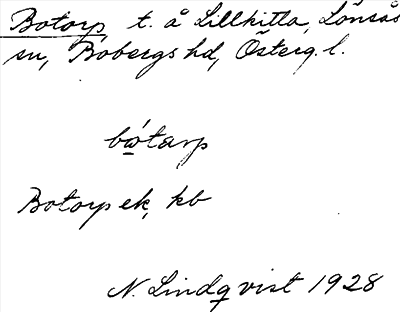 Botorp t. å Lillkitla, Lönsås
sn, Bobergs hd, Österg. l.
bώtarp
Botorp ek, kb
N. Lindqvist 1928